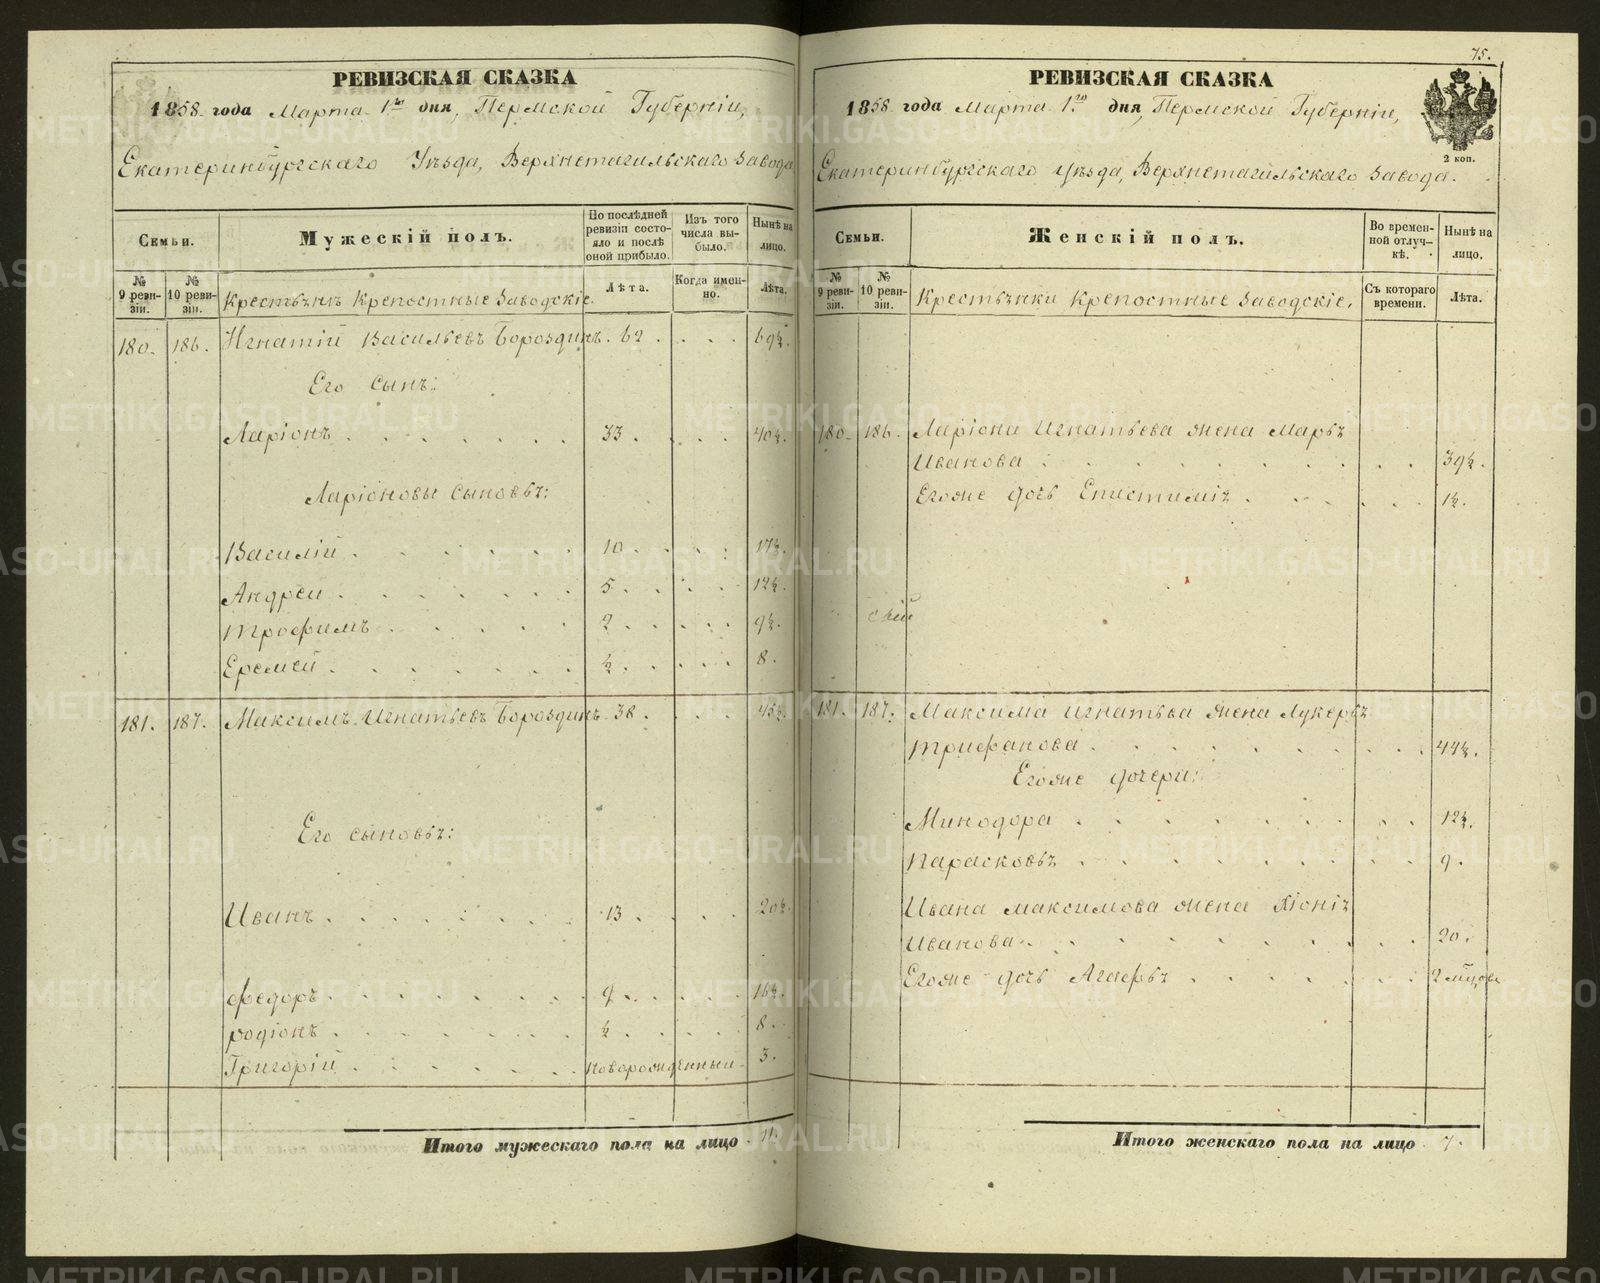 РЕВИЗСКАЯ СКАЗКА
1858 года Марта 1го дня, Пермской Губерніи,
Екатеринбургскаго Уѣзда, Верхнетагильскаго Завода
Семьи.
Мужескій полъ.
По послѣдней ревизіи состояло и послѣ оной прибыло.
Изъ того числа выбыло.
Нынѣ на лицо.
№ 9 ревизіи.
№ 10 ревизіи.
Крестьянѣ Крепостные Заводскіе.
Лѣта.
Когда именно.
Лѣта.
180. 186. Игнатій Васильевъ Бороздинъ. 62 . . . . 69½.
Его сынъ:
Ларіонъ . . . . . . . 33 . . . . 40½.
Ларіоновы сыновьѣ:
Василій . . . . . . 10 . . . . 17½.
Андреи . . . . . . . 5 . . . . 12½.
Трофимъ . . . . . 2 . . . . 9½.
Еремей . . . . . . ½ . . . . 8.
181. 187. Максимъ Игнатьевъ Бороздинъ. 38 . . . . 45½.
Его сыновьѣ:
Иванъ . . . . . . 13 . . . . 20½.
Федоръ . . . . . . . 9 . . . . 16½.
Родіонъ . . . . . . . ½ . . . . 8.
Григорій . . . . . . Новорожденныи 3.
Итого мужескаго пола на лицо 11.
75.
РЕВИЗСКАЯ СКАЗКА
2 коп.
1858 года Марта 1го дня, Пермской Губерніи,
Екатеринбургскаго уѣзда, Верхнетагильскаго Завода.
Семьи.
Женскій полъ.
Во временной отлучкѣ.
Нынѣ на лицо.
№ 9 ревизіи.
№ 10 ревизіи.
Крестьѣнки Крепостные Заводскіе.
Съ котораго времени.
Лѣта.
180. 186. Ларіона Игнатьева жена Марьѣ
Иванова . . . . . . . . . 39½.
Егоже дочь Епистиміѣ . . . . . . 1½.
181. 187. Максима Игнатьва жена Лукерьѣ
Трифанова . . . . . . . . . 44½.
Егоже дочери:
Минодора . . . . . . . . 12½.
Парасковьѣ . . . . . . . . 9.
Ивана Максимова жена Хіоніѣ
Иванова . . . . . . . . . 20.
Егоже дочь Агафьѣ . . . . . . . 2 мѣсяц
Итого женскаго пола на лицо 7.
METRIKI.GASO-URAL.RU